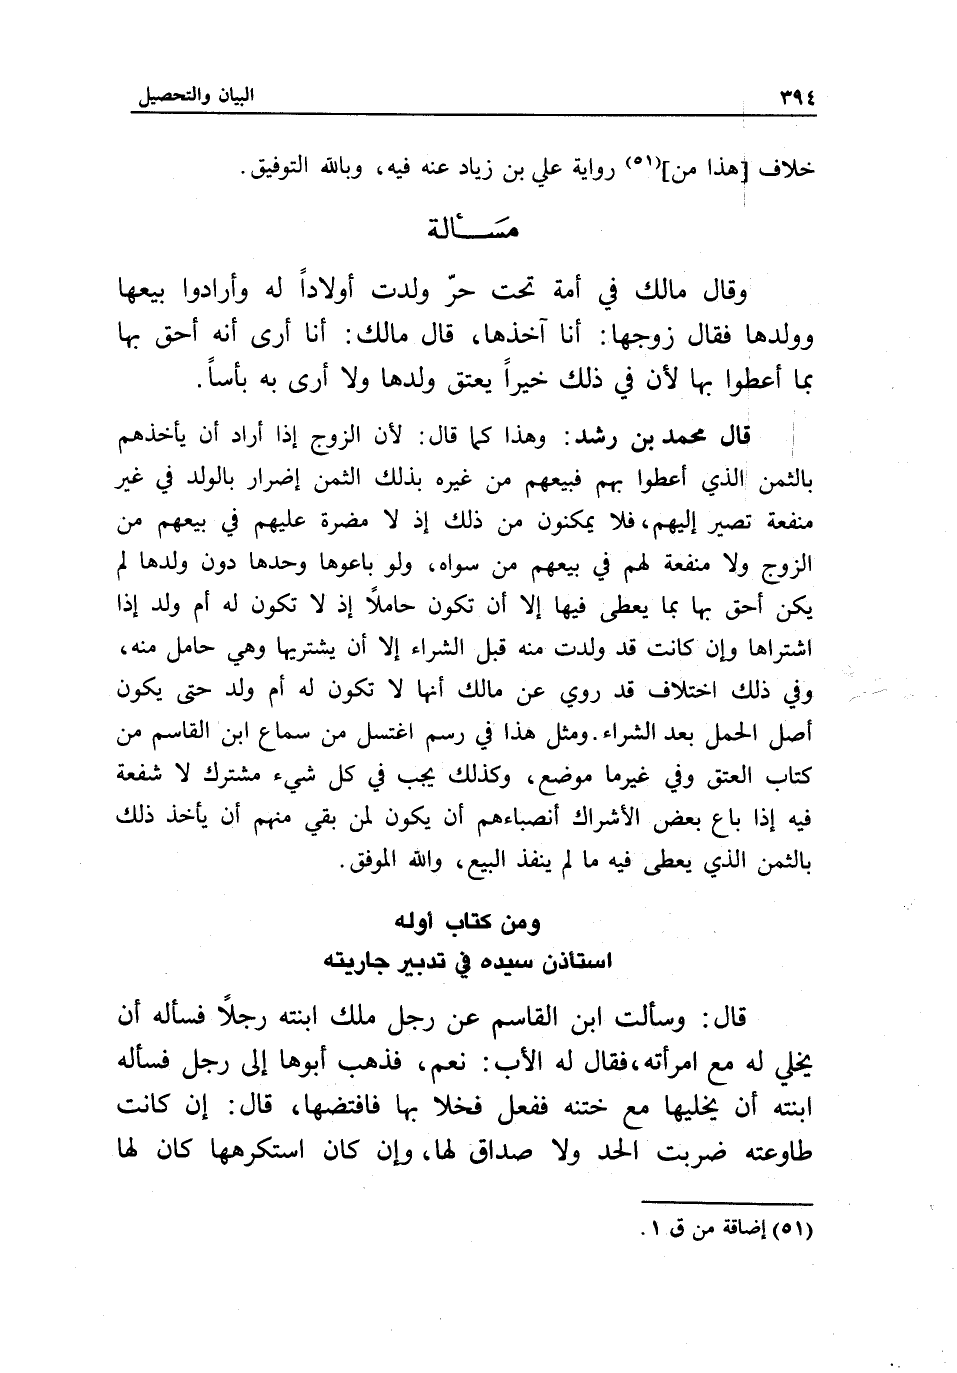 ٣٩٤ البيان والتحصيل
خلاف [هذا من](٥١) رواية علي بن زياد عنه فيه، وبالله التوفيق.
مَسْـأَلة
وقال مالك في أمة تحت حرّ ولدت أولاداً له وأرادوا بيعها
وولدها فقال زوجها: أنا آخذها، قال مالك: أنا أرى أنه أحق بها
بما أعطوا بها لأن في ذلك خيراً يعتق ولدها ولا أرى به بأساً.
قال محمد بن رشد: وهذا كما قال: لأن الزوج إذا أراد أن يأخذهم
بالثمن الذي أعطوا بهم فبيعهم من غيره بذلك الثمن إضرار بالولد في غير
منفعة تصير إليهم، فلا يمكنون من ذلك إذ لا مضرة عليهم في بيعهم من
الزوج ولا منفعة لهم في بيعهم من سواه، ولو باعوها وحدها دون ولدها لم
يكن أحق بها بما يعطى فيها إلا أن تكون حاملاً إذ لا تكون له أم ولد إذا
اشتراها وإن كانت قد ولدت منه قبل الشراء إلا أن يشتريها وهي حامل منه،
وفي ذلك اختلاف قد روي عن مالك أنها لا تكون له أم ولد حتى يكون
أصل الحمل بعد الشراء. ومثل هذا في رسم اغتسل من سماع ابن القاسم من
كتاب العتق وفي غيرما موضع، وكذلك يجب في كل شيء مشترك لا شفعة
فيه إذا باع بعض الأشراك أنصباءهم أن يكون لمن بقي منهم أن يأخذ ذلك
بالثمن الذي يعطى فيه ما لم ينفذ البيع، والله الموفق.
ومن كتاب أوله
استأذن سيده في تدبير جاريته
قال: وسألت ابن القاسم عن رجل ملك ابنته رجلاً فسأله أن
يخلي له مع امرأته، فقال له الأب: نعم، فذهب أبوها إلى رجل فسأله
ابنته أن يخليها مع ختنه ففعل فخلا بها فافتضها، قال: إن كانت
طاوعته ضربت الحد ولا صداق لها، وإن كان استكرهها كان لها
(٥١) إضافة من ق ١.